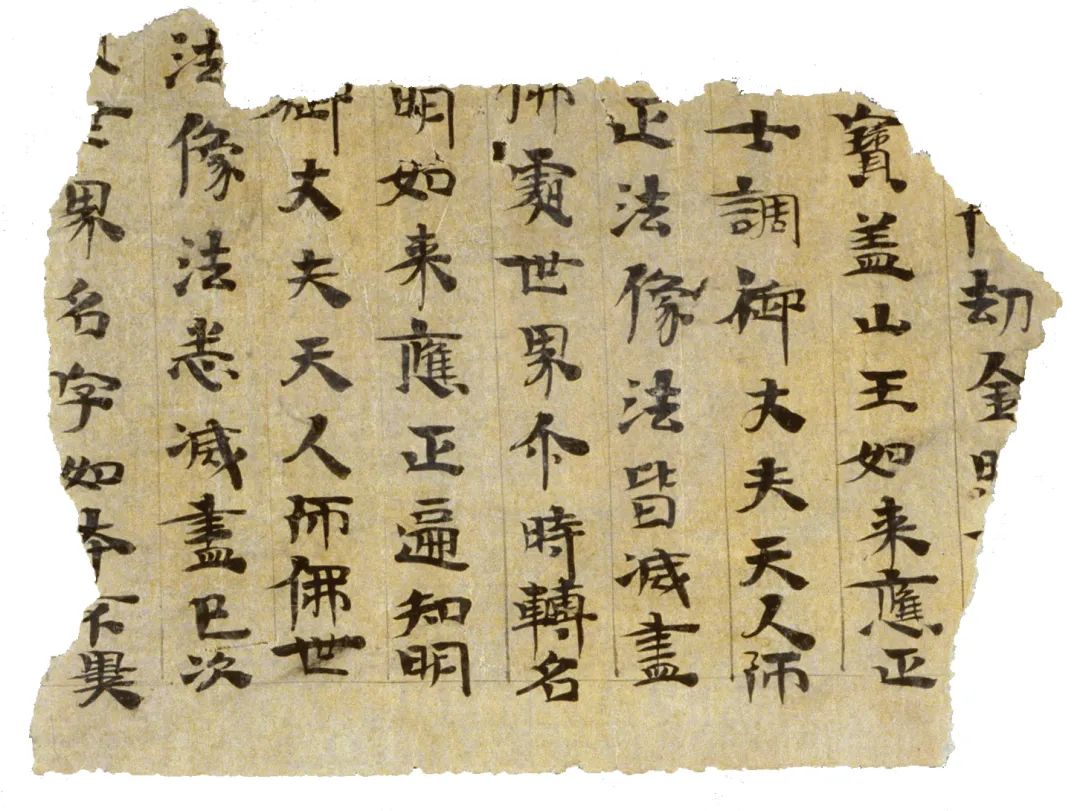 劫金
寶盖山王如来應正
士調御丈夫天人師
正法像法皆滅盡
佛世界尒時轉名
明如来應正遍知明
御丈夫天人師佛世
法像法悉滅盡已次
界名字如本不異